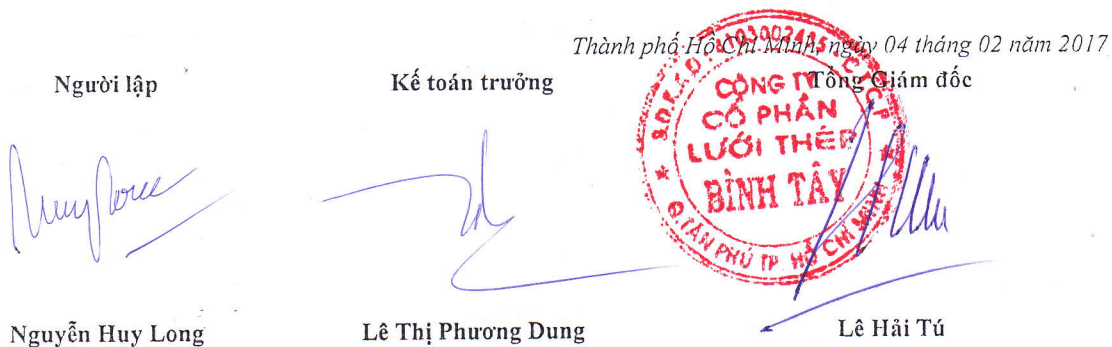 Thành phố Hồ Chí Minh, ngày 04 tháng 02 năm 2017
Người lập
Kế toán trưởng
Tổng Giám đốc
CÔNG TY
CỔ PHẦN
LƯỚI THÉP
BÌNH TÂY
Q.TÂN PHÚ TP. HỒ CHÍ MINH
Nguyễn Huy Long
Lê Thị Phương Dung
Lê Hải Tú